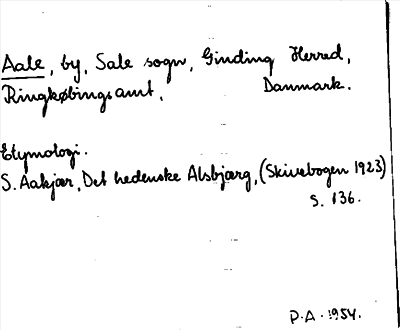 Aale, by, Sale sogn, Ginding Herred,
Ringkøbings amt, Danmark.
Etymologi.
S. Aakjær, Det hedenske Alsbjærg, (Skivebogen 1923)
s. 136.
P.A. 1954.